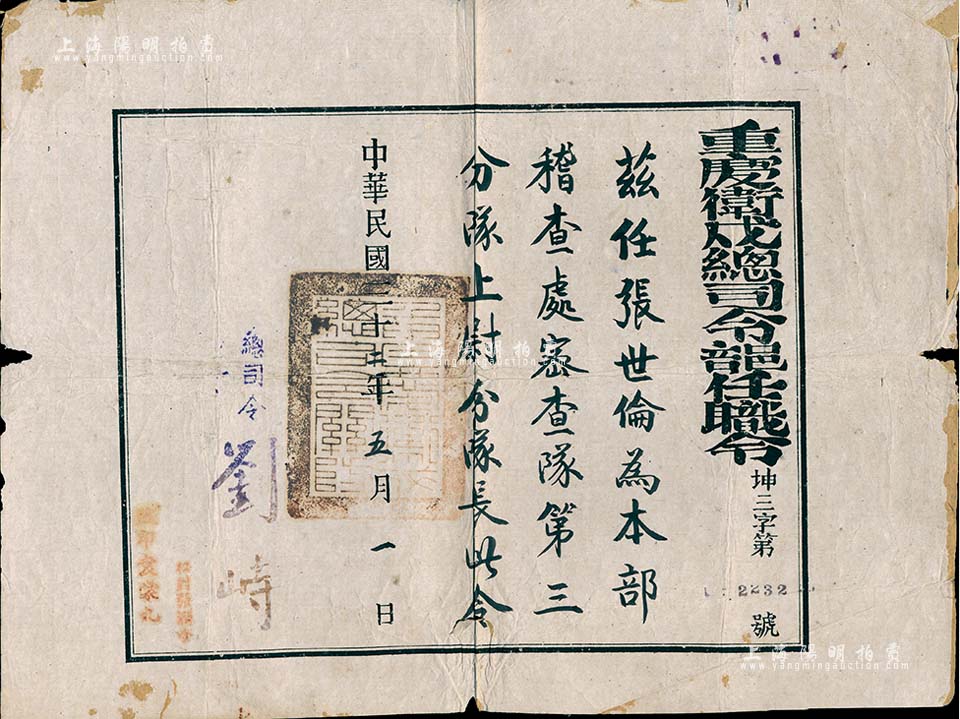 重慶衛戍總司令部任職令
坤三字第
2232
號
茲任張世倫為本部
稽查處密查隊第三
分隊上尉分隊長此令
中華民國三十五年五月一日
總司令
劉峙
上海陽明拍賣
www.yangmingauction.com
上海陽明拍賣
www.yangmingauction.com
上海陽明拍賣
www.yangmingauction.com